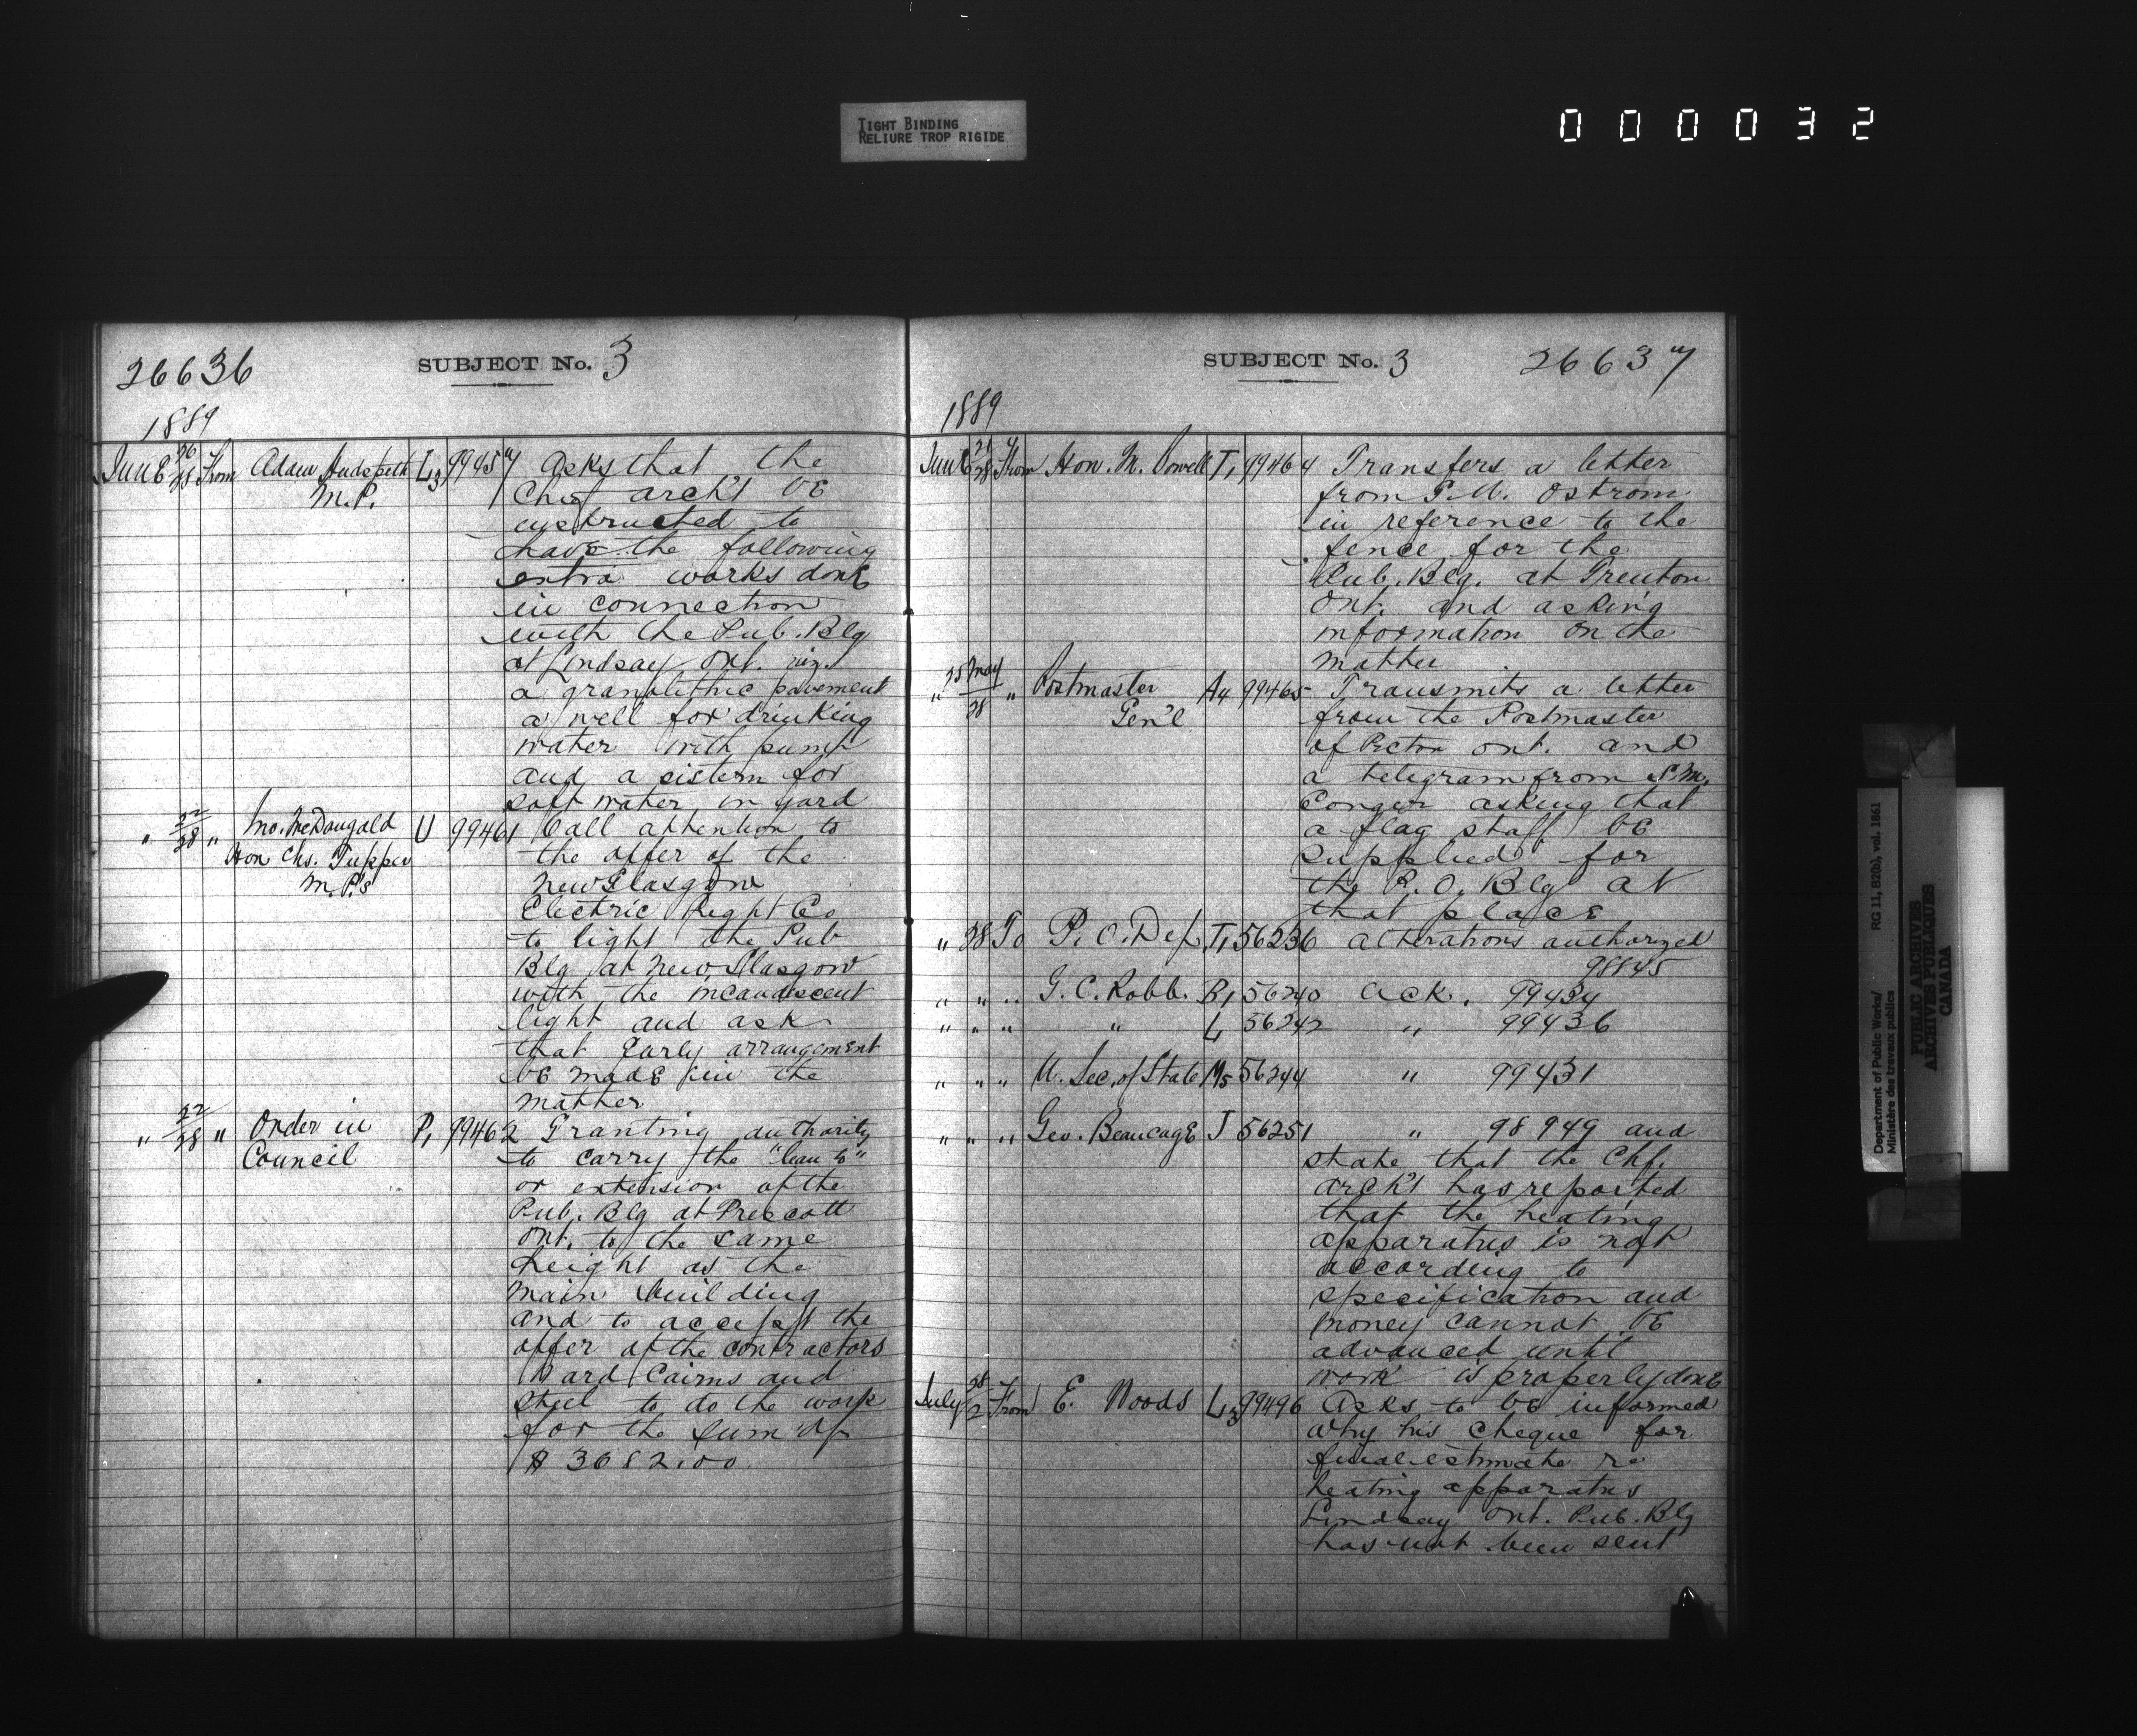 TIGHT BINDING
RELIURE TROP RIGIDE
000032
26636
SUBJECT No. 3
1889
June 26/28 From Adam Hudspeth L3 99457 Asks that the
M.P. Chf arch't be
instructed to
have the following
extra works done
in connection
with the Pub. Blg
at Lindsay Ont. viz.
a granolithic pavement
a well for drinking
water with pump
and a sistern for
soft water in yard
" 22/28 " Jno. McDougald U 99461 Call attention to
Hon Chs. Tupper the offer of the
M.P.'s New Glasgow
Electric Light Co
to light the Pub
Blg at New Glasgow
with the incandescent
light and ask
that early arrangement
be made in the
matter
" 22/28 " Order in P1 99462 Granting authority
Council to carry the "lean to"
or extension of the
Pub. Blg at Prescott
Ont. to the same
height as the
main building
and to accept the
offer of the contractors
Ward Cairns and
Steel to do the work
for the sum of
$ 3682.00
SUBJECT No. 3
26637
1889
June 21/28 From Hon. M. Bowell T1 99464 Transfers a letter
from P.M. Ostrom
in reference to the
fence for the
Pub. Blg. at Trenton
Ont. and asking
information on the
matter
" 25 May/28 " Postmaster A4 99465 Transmits a letter
Gen'l from the Postmaster
of Picton Ont. and
a telegram from S.M.
Conger asking that
a flag staff be
supplied for
the P.O. Blg at
that place
" 28 To P.O. Dep. T1 56236 alterations authorized
98845
" " " G.C. Robb. R1 56240 ack. 99434
" " " " L 56242 " 99436
" " " U. Sec. of State M5 56244 " 99431
" " " Geo. Beaucage J 56251 " 98949 and
state that the Chf.
arch't has reported
that the heating
apparatus is not
according to
specification and
money cannot be
advanced until
work is properly done
July 28/2 From E. Woods L3 99496 Asks to be informed
why his cheque for
final estimate re
heating apparatus
Lindsay Ont. Pub. Blg
has not been sent
Department of Public Works/
Ministère des travaux publics
RG 11, B2(b), vol. 1861
PUBLIC ARCHIVES
ARCHIVES PUBLIQUES
CANADA